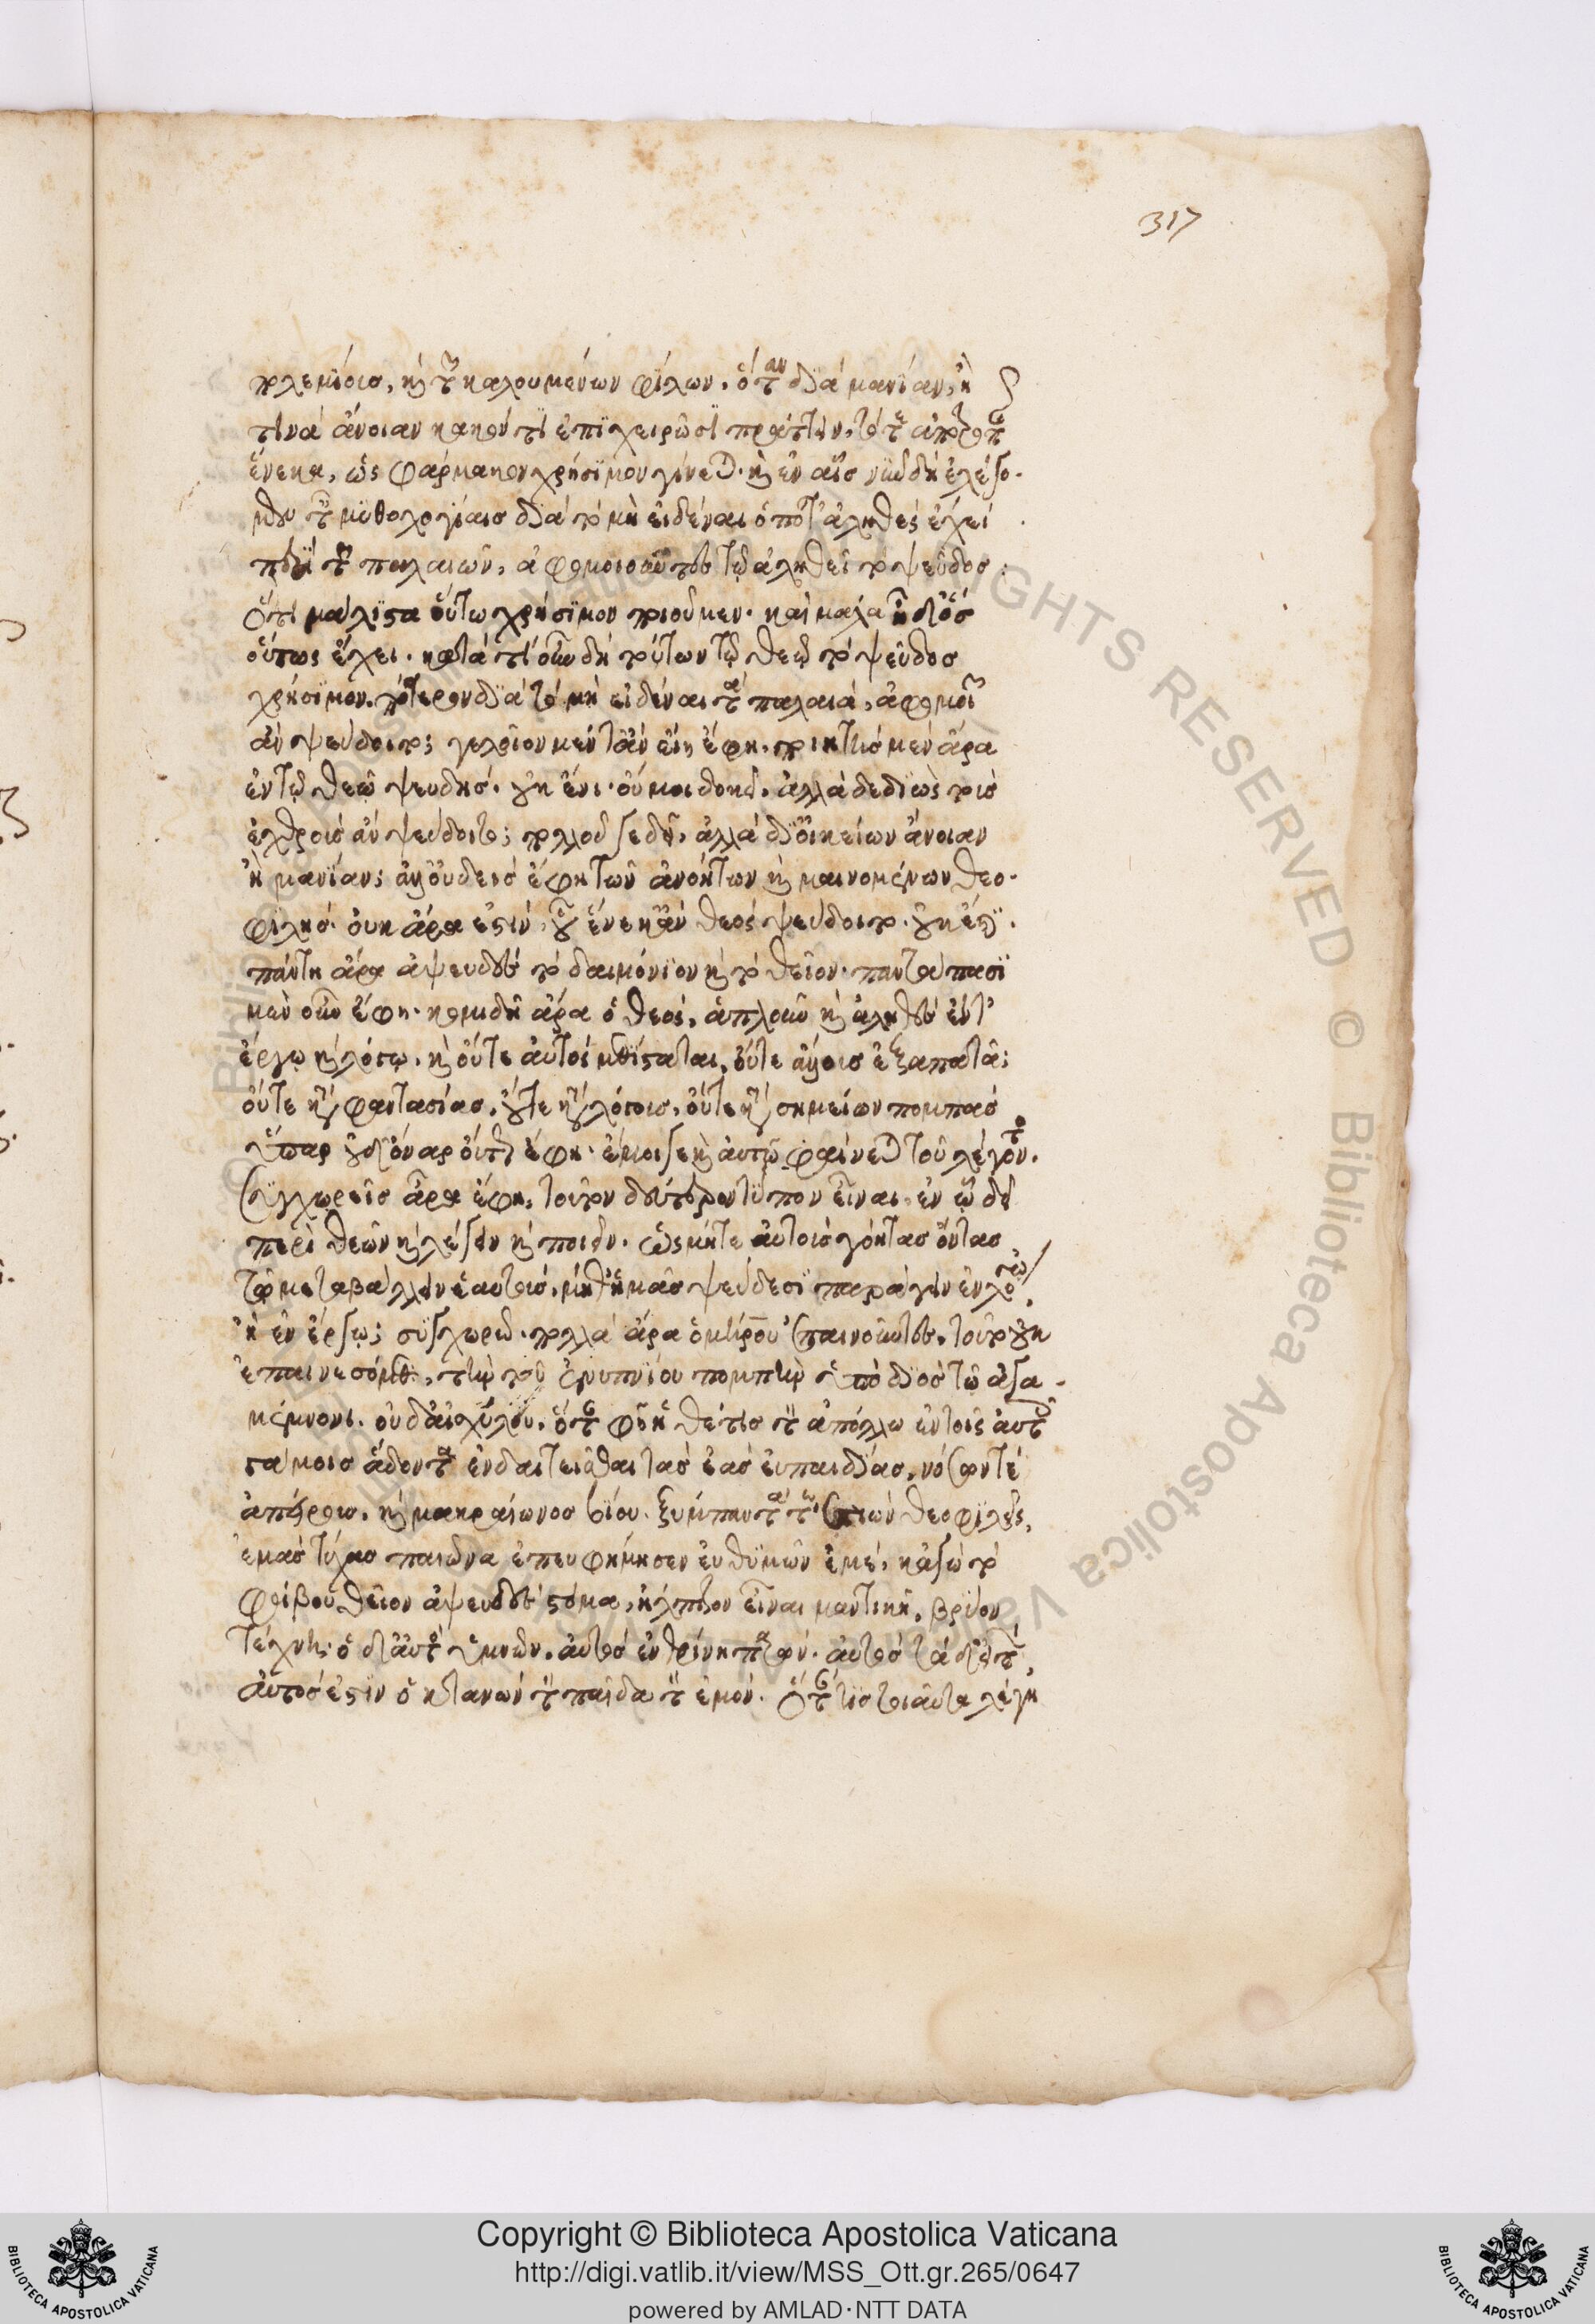 317
πολεμίοις, καὶ τῶν καλουμένων φίλων. ὅταν διὰ μανίαν, ἤ
τινα ἄνοιαν κακόν τι ἐπιχειρῶσι πράττειν, τότε ἀποτροπῆς
ἕνεκα, ὡς φάρμακον χρήσιμον γίνεται. καὶ ἐν αἷς νῦν δὴ ἐλέγο-
μεν ταῖς μυθολογίαις διὰ τὸ μὴ εἰδέναι ὅποι τ' ἀληθὲς ἔχει
περὶ τῶν παλαιῶν, ἀφομοιοῦντες τῷ ἀληθεῖ τὸ ψεῦδος
ὅτι μάλιστα οὕτω χρήσιμον ποιοῦμεν. καὶ μάλα ἦ δ' ὃς
οὕτως ἔχει. κατὰ τί οὖν δὴ τούτων τῷ θεῷ τὸ ψεῦδος
χρήσιμον. πότερον διὰ τὸ μὴ εἰδέναι τὰ παλαιά, ἀφομοιῶν
ἂν ψεύδοιτο; γελοῖον μέντ' ἂν εἴη ἔφη. ποιητὴς μὲν ἄρα
ἐν τῷ θεῷ ψευδής. οὐκ ἔνι. οὔ μοι δοκεῖ. ἀλλὰ δεδιὼς τοὺς
ἐχθροὺς ἂν ψεύδοιτο; πολλοῦ γε δεῖ. ἀλλὰ δι' οἰκείων ἄνοιαν
ἢ μανίαν; ἀλλ' οὐδεὶς ἔφη τῶν ἀνοήτων καὶ μαινομένων θεο-
φιλής. οὐκ ἄρα ἐστίν, οὗ ἕνεκ' ἂν θεὸς ψεύδοιτο. οὐκ ἔστι.
πάντη ἄρα ἀψευδὲς τὸ δαιμόνιον καὶ τὸ θεῖον. παντάπασι
μὲν οὖν ἔφη. κομιδῇ ἄρα ὁ θεός, ἁπλοῦν καὶ ἀληθὲς ἔν τ'
ἔργῳ καὶ λόγῳ. καὶ οὔτε αὐτὸς μεθίσταται, οὔτε ἄλλους ἐξαπατᾷ;
οὔτε κατὰ φαντασίας, οὔτε κατὰ λόγους, οὔτε κατὰ σημείων πομπὰς
ὕπαρ οὐδ' ὄναρ οὕτως ἔφη. ἔμοιγε καὶ αὐτῷ φαίνεται σοῦ λέγοντος.
συγχωρεῖς ἄρα ἔφην, τοῦτον δεύτερον τύπον εἶναι. ἐν ᾧ δεῖ
περὶ θεῶν καὶ λέγειν καὶ ποιεῖν. ὡς μήτε αὐτοὺς γόητας ὄντας
τῷ μεταβάλλειν ἑαυτούς, μήθ' ἡμᾶς ψεύδεσι παράγειν ἐν λόγῳ,
ἢ ἐν ἔργῳ; συγχωρῶ. πολλὰ ἄρα ὁμήρου ἐπαινοῦντες, τοῦτο οὐκ
ἐπαινεσόμεθα, τὴν τοῦ ἐνυπνίου πομπὴν ὑπὸ διὸς τῷ ἀγα-
μέμνονι. οὐδ' αἰσχύλου, ὅταν φῇ ἡ θέτις τὸν ἀπόλλω ἐν τοῖς αὐτῆς
γάμοις ᾄδοντα ἐνδατεῖσθαι τὰς ἑὰς εὐπαιδίας, νόσων τε
ἀπείρους. καὶ μακραίωνος βίου. ξύμπαντά τ' εἰπὼν θεοφιλεῖς,
ἐμὰς τύχας παιῶνα ἐπευφήμησεν εὐθυμῶν ἐμέ, κἀγὼ τὸ
φοίβου θεῖον ἀψευδὲς στόμα, ἤλπιζον εἶναι μαντικῇ, βρύον
τέχνῃ. ὁ δ' αὐτὸς ὑμνῶν. αὐτὸς ἐν θοίνῃ παρών. αὐτὸς τάδ' εἰπών,
αὐτός ἐστιν ὁ κτανὼν τὸν παῖδα τὸν ἐμόν. ὅταν τις τοιαῦτα λέγῃ
Copyright © Biblioteca Apostolica Vaticana
http://digi.vatlib.it/view/MSS_Ott.gr.265/0647
powered by AMLAD·NTT DATA